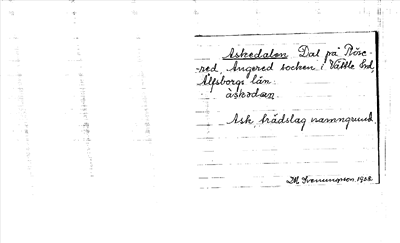 Askedalen Dal på Röse-
red, Angered socken i Vättle hd,
Älfsborgs län.
àskədan.
Ask, trädslag namngrund.
DM. Svenungsson 1922